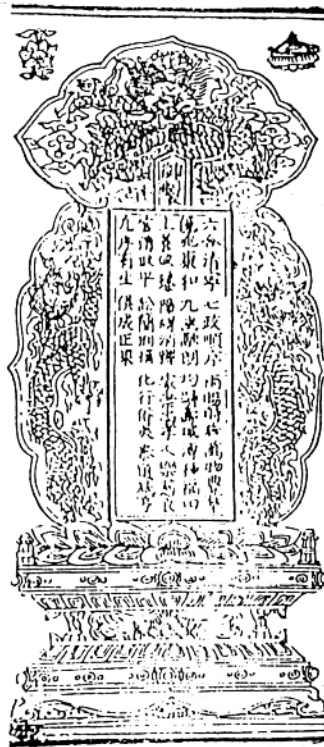 御製
六合清寧 七政順序 雨暘時若 萬物阜豐
億兆康和 九幽融朗 均躋壽域 溥種福田
上善攸臻 障礙消釋 家崇忠孝 人樂慈良
官清政平 訟簡刑措 化行俗美 泰道咸亨
凡厥有生 俱成正果